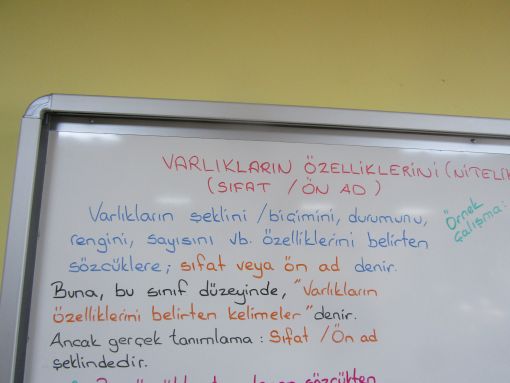 VARLIKLARIN ÖZELLİKLERİNİ (NİTELİK
(SIFAT / ÖN AD)
Varlıkların şeklini / biçimini, durumunu,
rengini, sayısını vb. özelliklerini belirten
sözcüklere; sıfat veya ön ad denir.
Buna, bu sınıf düzeyinde, "Varlıkların
özelliklerini belirten kelimeler" denir.
Ancak gerçek tanımlama: Sıfat / Ön ad
şeklindedir.
Örnek
Çalışma: